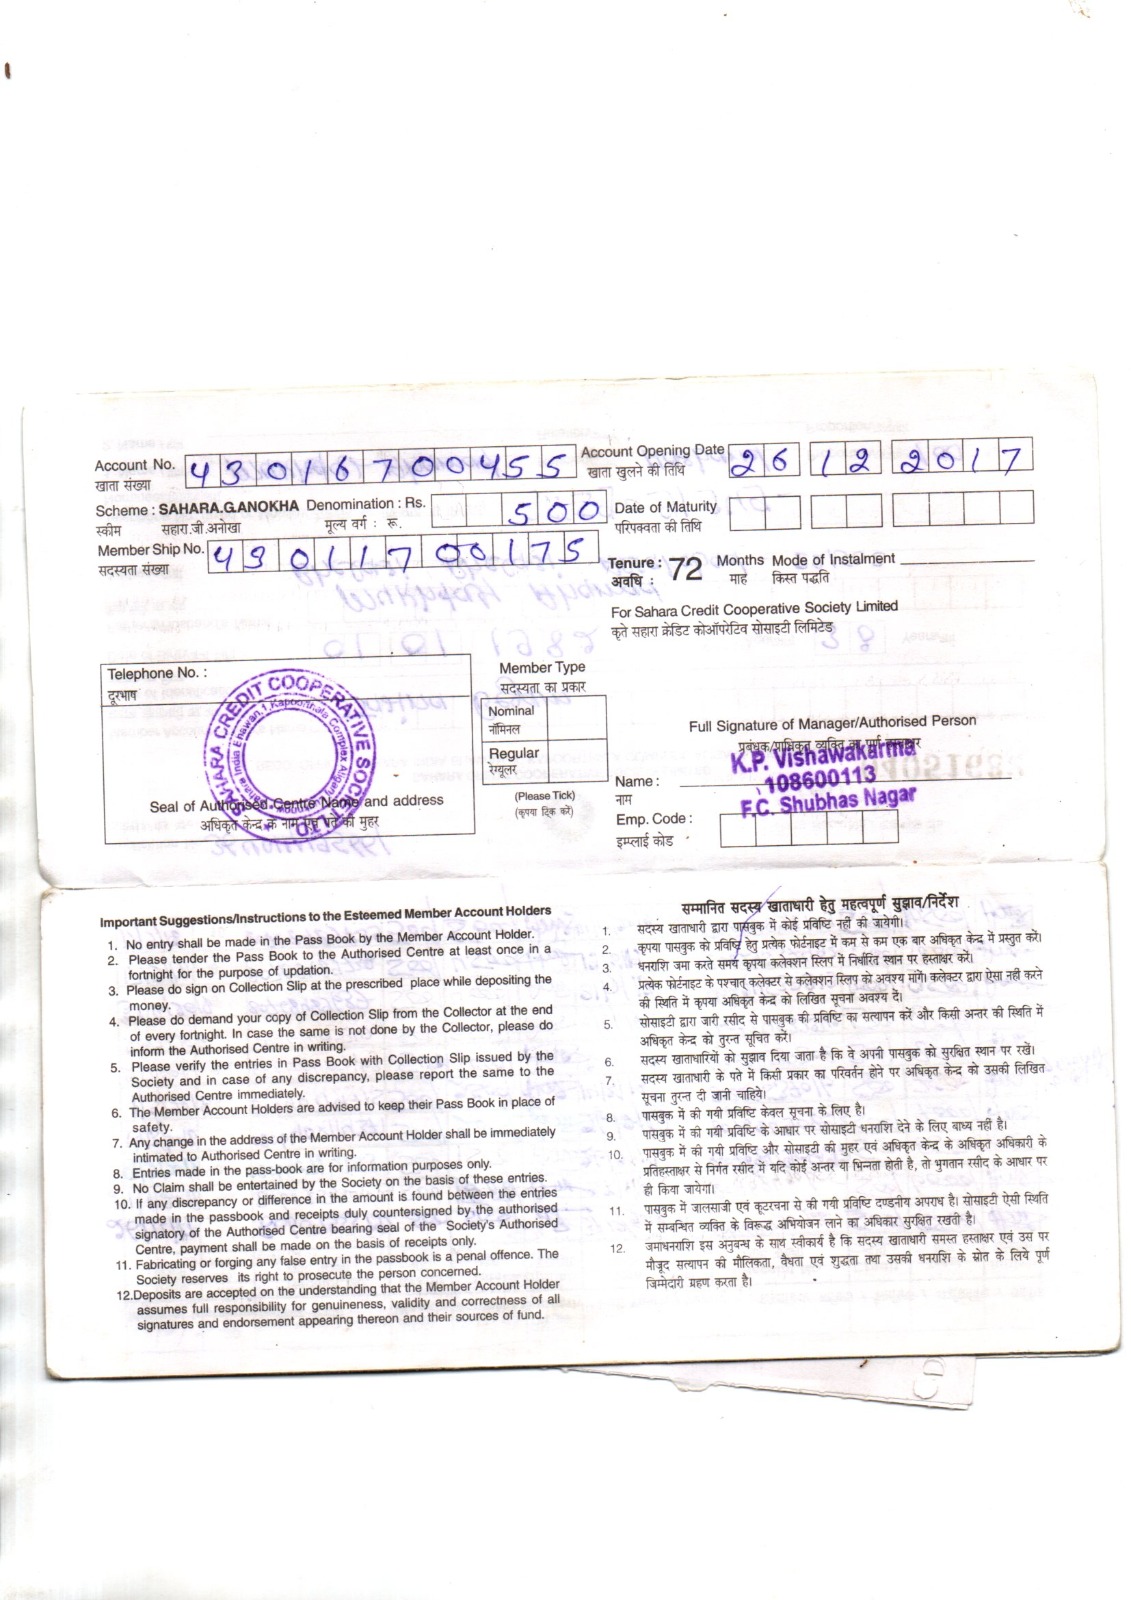 Account No. 43016700455 Account Opening Date 26 12 2017
खाता संख्या खाता खुलने की तिथि
Scheme : SAHARA.G.ANOKHA Denomination : Rs. 500 Date of Maturity
स्कीम सहारा.जी.अनोखा मूल्य वर्ग : रू. परिपक्वता की तिथि
Member Ship No. 43011700175
सदस्यता संख्या
Tenure : 72 Months Mode of Instalment
अवधि : माह किस्त पद्धति
For Sahara Credit Cooperative Society Limited
कृते सहारा क्रेडिट कोऑपरेटिव सोसाइटी लिमिटेड
Telephone No. :
दूरभाष
SAHARA CREDIT COOPERATIVE SOCIETY
Seal of Authorised Centre Name and address
अधिकृत केन्द्र के नाम एवं पते की मुहर
Member Type
सदस्यता का प्रकार
Nominal
नॉमिनल
Regular
रेग्यूलर
(Please Tick)
(कृपया टिक करें)
Full Signature of Manager/Authorised Person
प्रबंधक/प्राधिकृत व्यक्ति का पूर्ण हस्ताक्षर
K.P. Vishawakarma
Name : 108600113
नाम F.C. Shubhas Nagar
Emp. Code :
इम्प्लाई कोड
Important Suggestions/Instructions to the Esteemed Member Account Holders
1. No entry shall be made in the Pass Book by the Member Account Holder.
2. Please tender the Pass Book to the Authorised Centre at least once in a
fortnight for the purpose of updation.
3. Please do sign on Collection Slip at the prescribed place while depositing the
money.
4. Please do demand your copy of Collection Slip from the Collector at the end
of every fortnight. In case the same is not done by the Collector, please do
inform the Authorised Centre in writing.
5. Please verify the entries in Pass Book with Collection Slip issued by the
Society and in case of any discrepancy, please report the same to the
Authorised Centre immediately.
6. The Member Account Holders are advised to keep their Pass Book in place of
safety.
7. Any change in the address of the Member Account Holder shall be immediately
intimated to Authorised Centre in writing.
8. Entries made in the pass-book are for information purposes only.
9. No Claim shall be entertained by the Society on the basis of these entries.
10. If any discrepancy or difference in the amount is found between the entries
made in the passbook and receipts duly countersigned by the authorised
signatory of the Authorised Centre bearing seal of the Society's Authorised
Centre, payment shall be made on the basis of receipts only.
11. Fabricating or forging any false entry in the passbook is a penal offence. The
Society reserves its right to prosecute the person concerned.
12.Deposits are accepted on the understanding that the Member Account Holder
assumes full responsibility for genuineness, validity and correctness of all
signatures and endorsement appearing thereon and their sources of fund.
सम्मानित सदस्य खाताधारी हेतु महत्वपूर्ण सुझाव/निर्देश
1. सदस्य खाताधारी द्वारा पासबुक में कोई प्रविष्टि नहीं की जायेगी।
2. कृपया पासबुक को प्रविष्टि हेतु प्रत्येक फोर्टनाइट में कम से कम एक बार अधिकृत केन्द्र में प्रस्तुत करें।
3. धनराशि जमा करते समय कृपया कलेक्शन स्लिप में निर्धारित स्थान पर हस्ताक्षर करें।
4. प्रत्येक फोर्टनाइट के पश्चात् कलेक्टर से कलेक्शन स्लिप को अवश्य मांगें। कलेक्टर द्वारा ऐसा नही करने
की स्थिति में कृपया अधिकृत केन्द्र को लिखित सूचना अवश्य दें।
5. सोसाइटी द्वारा जारी रसीद से पासबुक की प्रविष्टि का सत्यापन करें और किसी अन्तर की स्थिति में
अधिकृत केन्द्र को तुरन्त सूचित करें।
6. सदस्य खाताधारियों को सुझाव दिया जाता है कि वे अपनी पासबुक को सुरक्षित स्थान पर रखें।
7. सदस्य खाताधारी के पते में किसी प्रकार का परिवर्तन होने पर अधिकृत केन्द्र को उसकी लिखित
सूचना तुरन्त दी जानी चाहिये।
8. पासबुक में की गयी प्रविष्टि केवल सूचना के लिए है।
9. पासबुक में की गयी प्रविष्टि के आधार पर सोसाइटी धनराशि देने के लिए बाध्य नहीं है।
10. पासबुक में की गयी प्रविष्टि और सोसाइटी की मुहर एवं अधिकृत केन्द्र के अधिकृत अधिकारी के
प्रतिहस्ताक्षर से निर्गत रसीद में यदि कोई अन्तर या भिन्नता होती है, तो भुगतान रसीद के आधार पर
ही किया जायेगा।
11. पासबुक में जालसाजी एवं कूटरचना से की गयी प्रविष्टि दण्डनीय अपराध है। सोसाइटी ऐसी स्थिति
में सम्बन्धित व्यक्ति के विरूद्ध अभियोजन लाने का अधिकार सुरक्षित रखती है।
12. जमाधनराशि इस अनुबन्ध के साथ स्वीकार्य है कि सदस्य खाताधारी समस्त हस्ताक्षर एवं उस पर
मौजूद सत्यापन की मौलिकता, वैधता एवं शुद्धता तथा उसकी धनराशि के स्रोत के लिये पूर्ण
जिम्मेदारी ग्रहण करता है।